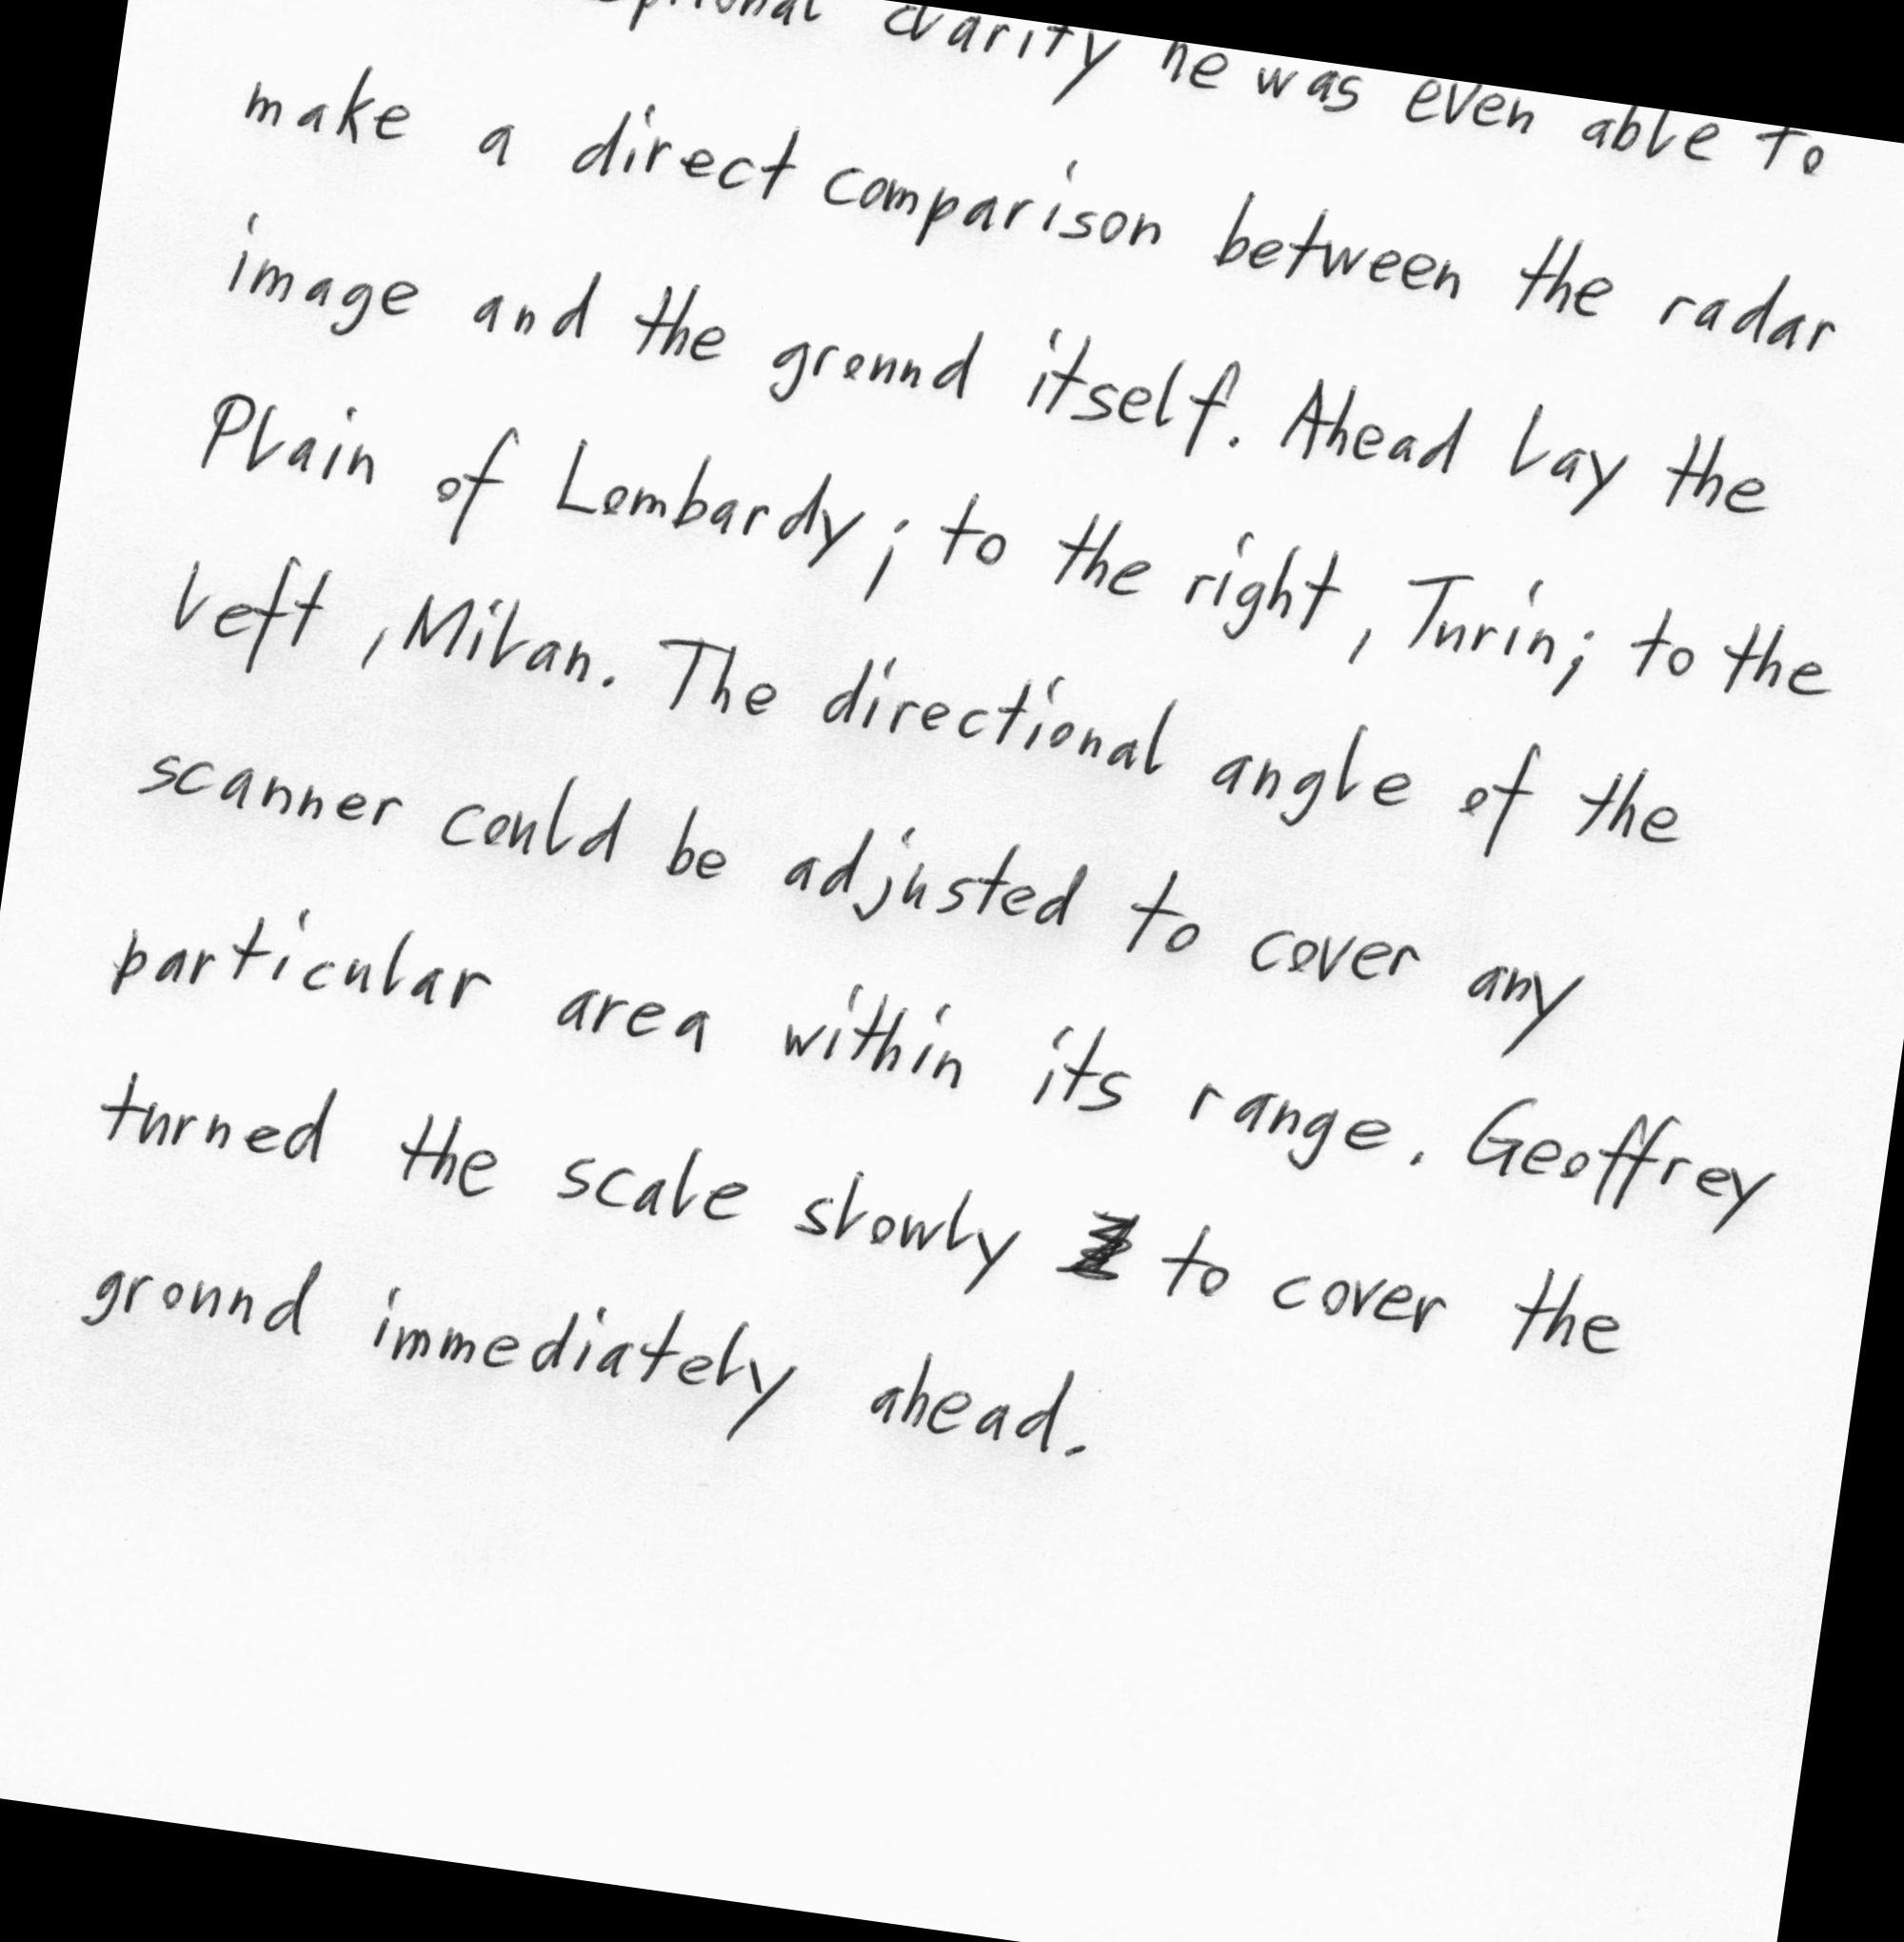 clarity he was even able to
make a direct comparison between the radar
image and the ground itself. Ahead lay the
Plain of Lombardy; to the right, Turin; to the
left, Milan. The directional angle of the
scanner could be adjusted to cover any
particular area within its range. Geoffrey
turned the scale slowly to cover the
ground immediately ahead.